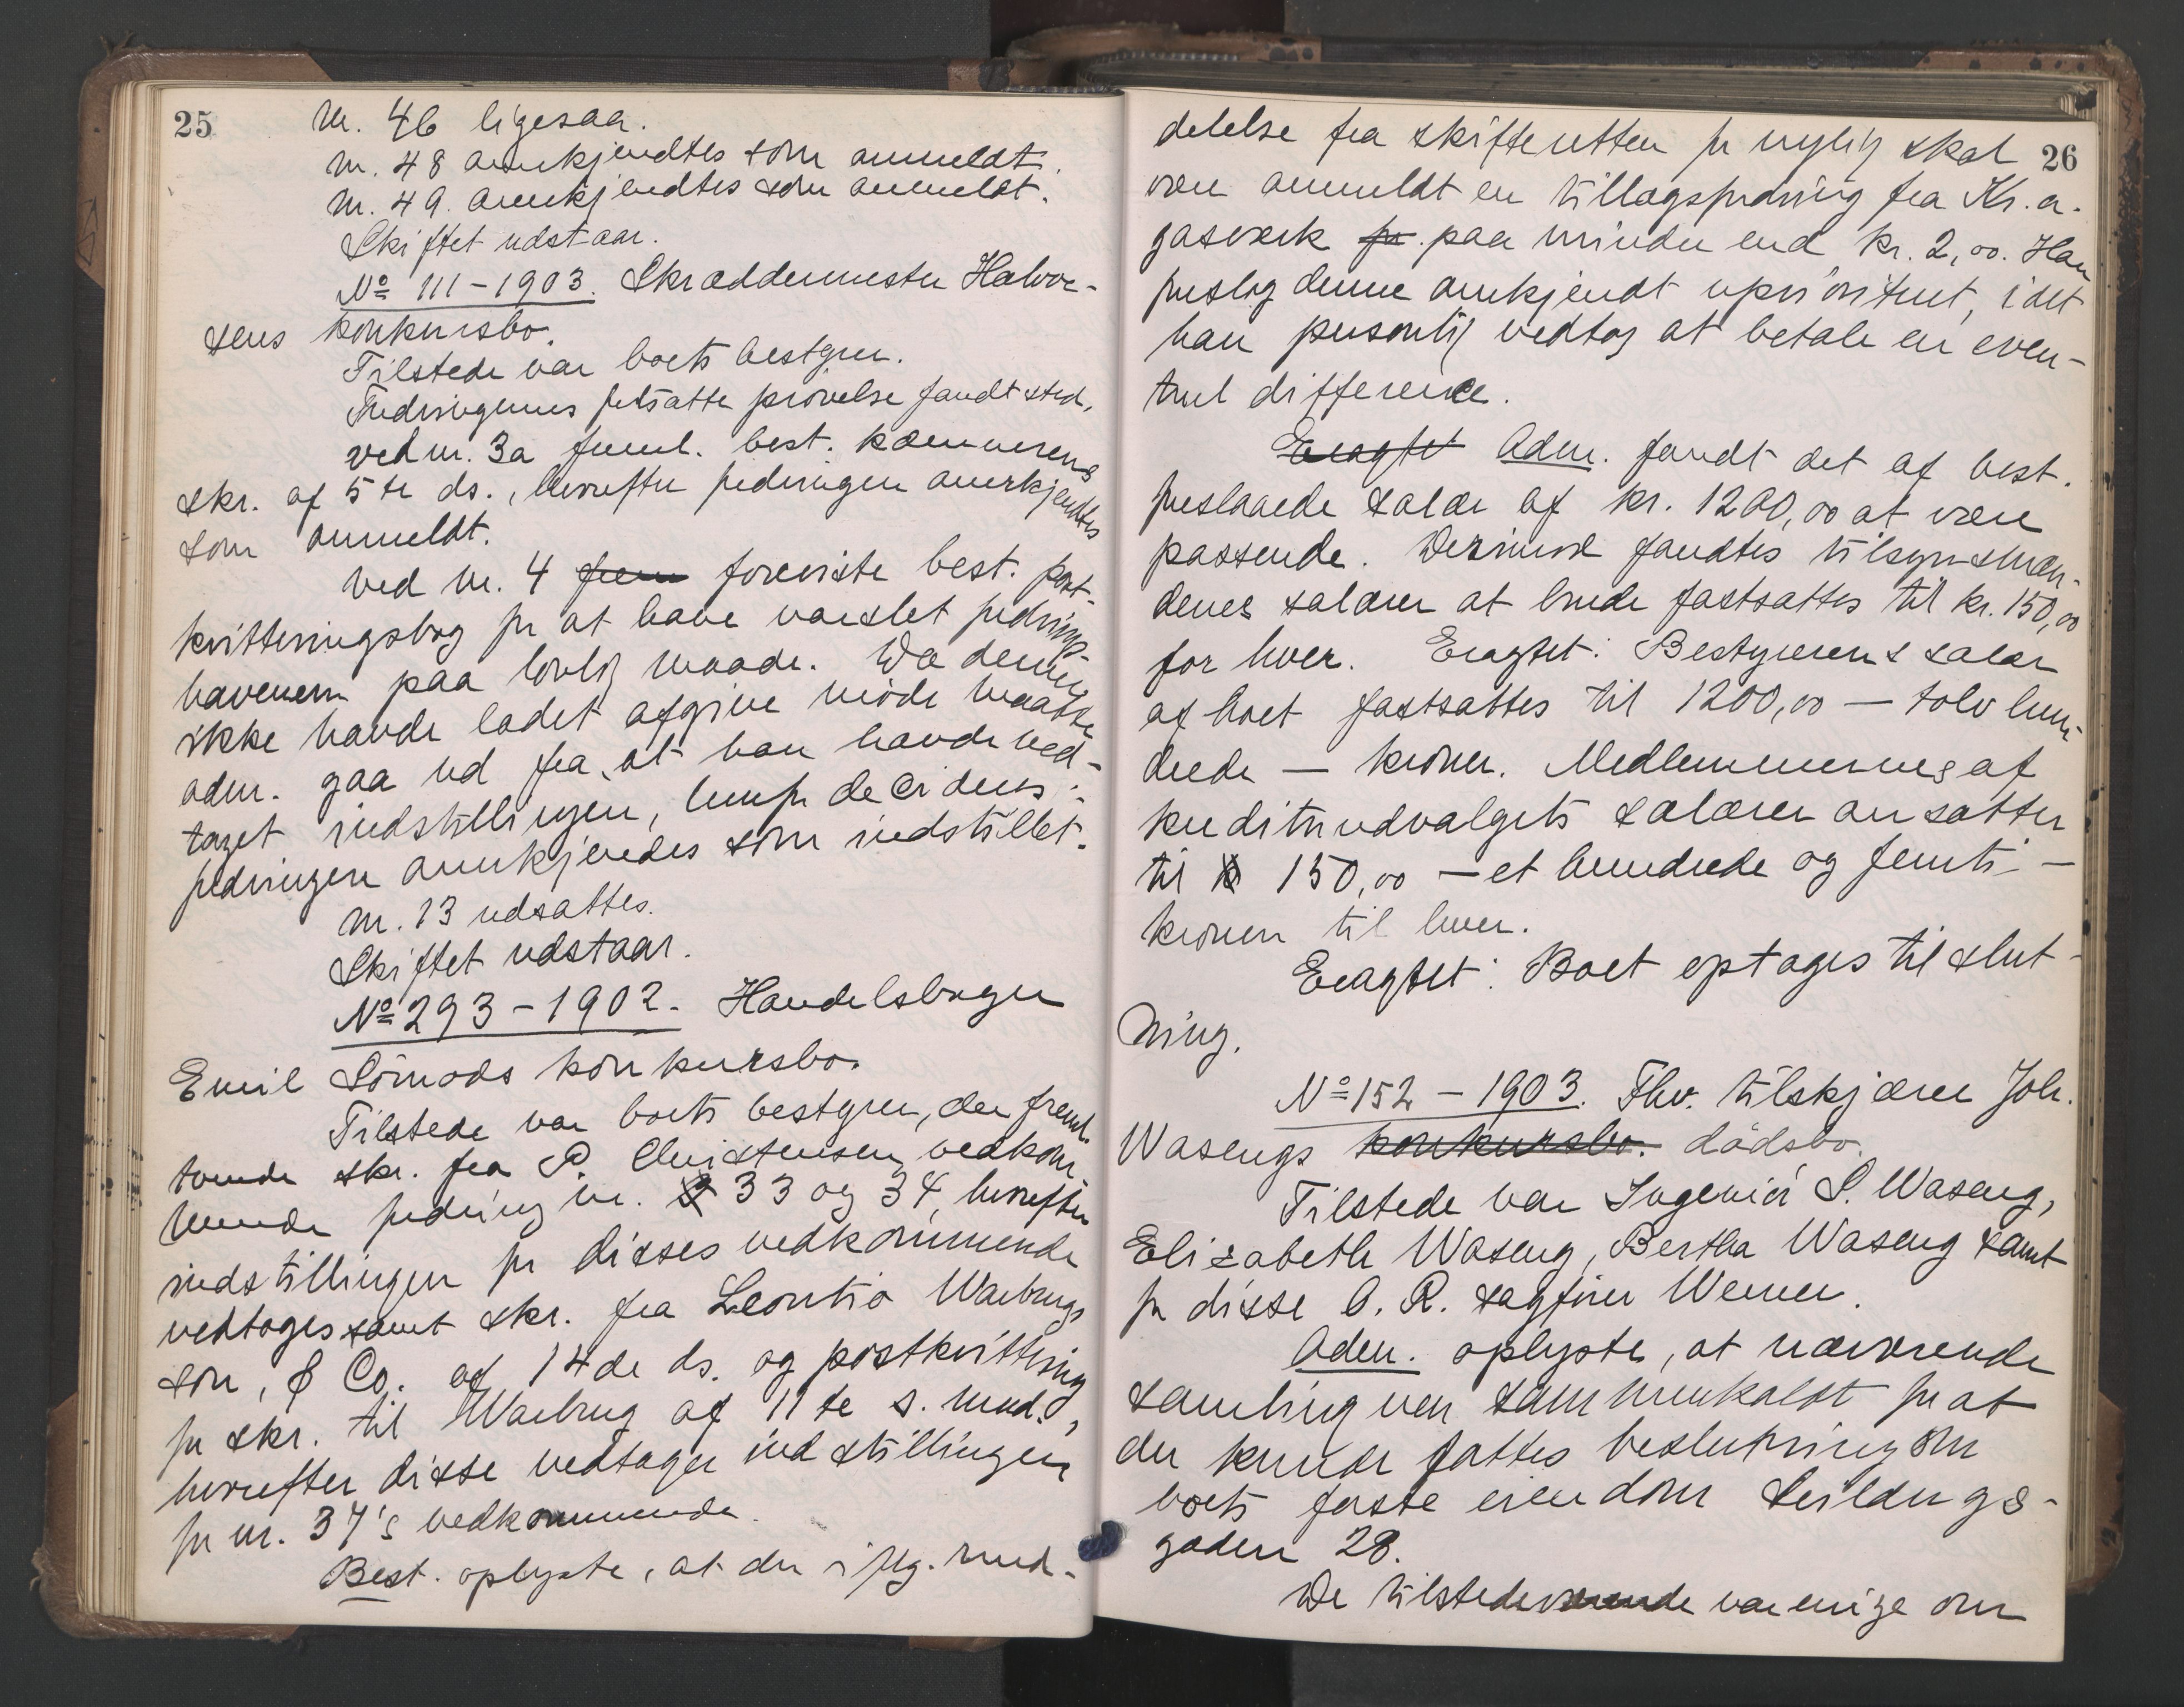 25
nr. 46 ligesaa.
nr. 48 anerkjendtes som anmeldt.
nr. 49. anerkjendtes som anmeldt.
Skiftet udstaar.
No 111-1903. Skræddermester Halvor-
sens konkursbo.
Tilstede var boets bestyrer.
Fordringernes fortsatte prövelse fandt sted,
ved nr. 3a freml. best. kæmnerens
skr. af 5te ds., hvorefter fordringen anerkjendtes
som anmeldt.
Ved nr. 4 frem foreviste best. post-
kvitteringsbog for at have varslet fordrings-
haveren paa lovlig maade. Da denne
ikke havde ladet afgive möde maatte
adm. gaa ud fra, at han havde ved-
taget indstillingen, hvorfor decideres:
fordringen anerkjendes som indstillet.
nr. 13 udsattes.
Skiftet udstaar.
No 293-1902. Handelsborger
Emil Sörnads konkursbo.
Tilstede var boets bestyrer, der freml.
skr. fra P. Christensen vedkom-
mende fordring nr. 3 33 og 34, hvorefter
indstillingen for disses vedkommende
vedtoges samt skr. fra Leontio Warburgs
sön, & Co. af 14de ds. og postkvittering
for skr. til Warburg af 11te s. mnd.,
hvorefter disse vedtager indstillingen
for nr. 37's vedkommende.
Best. oplyste, at der iflg. med-
26
delelse fra skifteretten for nylig skal
være anmeldt en tillægsfordring fra Kr.a.
gasværk for. paa mindre end kr. 2,00. Han
foreslog denne anerkjendt uprioritert, idet
han personlig vedtog at betale en even-
tuel difference.
Eragtet Adm. fandt det af best.
foreslaaede salær af kr. 1200,00 at være
passende. Derimod fandtes tilsynsmæn-
denes salærer at burde fastsættes til kr. 150,00
for hver. Eragtet: Bestyrerens salær
af boet fastsættes til 1200,00 – tolv hun-
drede – kroner. Medlemmernes af
kreditorudvalgets salærer ansættes
til 150,00 – et hundrede og femti –
kroner til hver.
Eragtet: Boet optages til slut-
ning.
No 152 – 1903. Fhv. tilskjærer Joh.
Wasengs konkursbo. dödsbo.
Tilstede var Ingeniör S. Waseng,
Elizabeth Waseng, Bertha Waseng samt
for disse O. R. sagförer Werner.
Adm. oplyste, at nærværende
samling var sammenkaldt for at
der kunde fattes beslutning om
boets faste eiendom Seildugs-
gaden 28.
De tilstedeværende var enige om